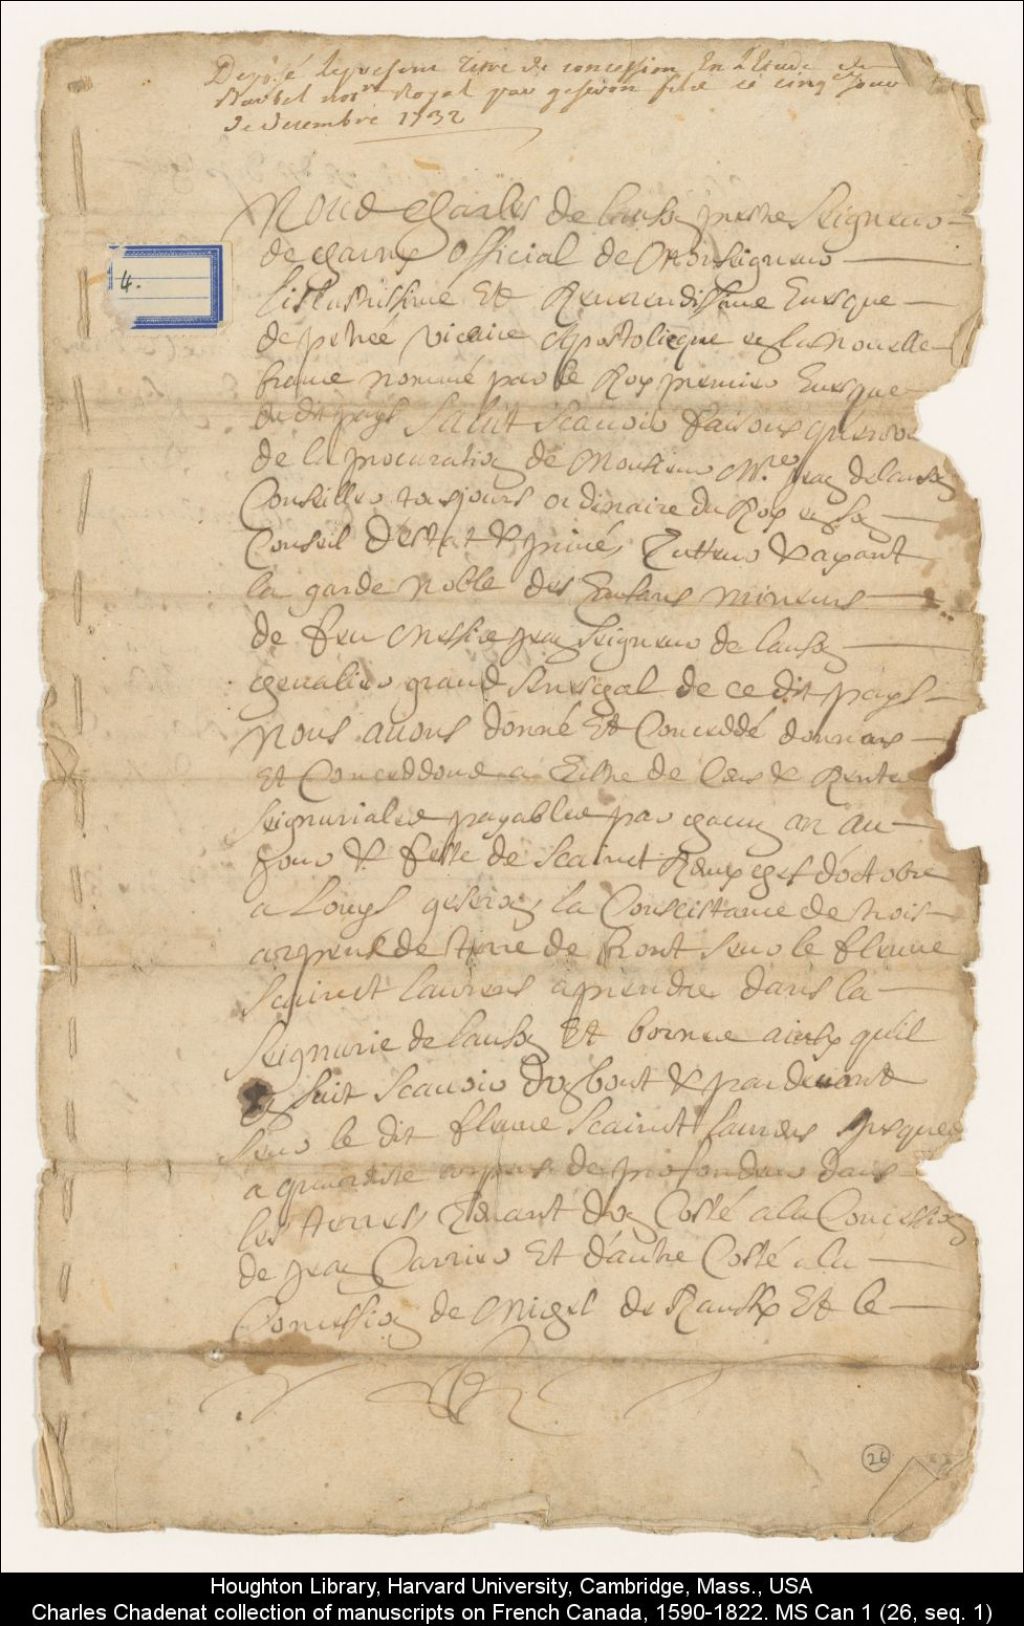 Deposé le present titre de concession En L'Etude de
Barbel not.re Royal par geseron filz ce cinq.e Jour
de decembre 1732
4.
Nous Charles de lauson prestre Seigneur
de Charny Official de Monseigneur
Lillustrissime Et Reuerendissime Euesque
de petrée vicaire Apostolicque en la nouuelle
france nommé par le Roy premier Euesque
du dit pays Salut Scauoir faisons qu'en
de la procuration de Monsieur M.re jean de lauson
Conseiller tousjours ordinaire du Roy en son
Conseil d'Estat & priué, Tutteur & ayant
la garde noble des Enfans mineurs
de feu Messire jean Seigneur de lauson
cheualier grand Seneschal de ce dit pays
Nous auons donné Et Conceddé donnons
Et Conceddons a Tiltre de Cens & Rente
Seigneuriales payables par chacun an au
jour & feste de Scainct Remy chef d'octobre
a Louys geseron, la Conscistance de trois
arpens de terre de front sur le fleuue
Scainct laurens a prendre dans la
Seigneurie de lauson Et bornee ainsy quil
En suit Scauoir d'un bout & par deuant
sur le dit fleuue Scainct laurens jusques
a quarante arpens de profondeur dans
les terres Tenant d'un Costé a la Concession
de jean Carrier Et d'autre Costé a la
Concession de Michel Et le
26
Houghton Library, Harvard University, Cambridge, Mass., USA
Charles Chadenat collection of manuscripts on French Canada, 1590-1822. MS Can 1 (26, seq. 1)